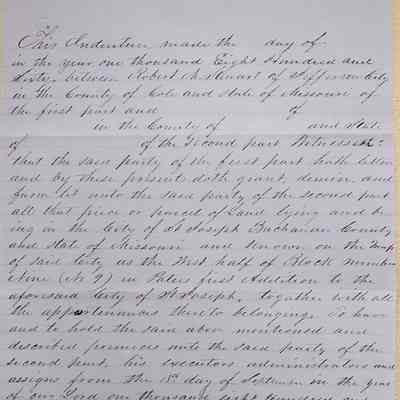 This Indenture made the day of
in the year one thousand Eight Hundred and
Sixty between Robert M Stewart of Jefferson City
in the County of Cole and state of Missouri of
the first part and of
in the County of and State
of of the Second part Witnesseth
that the said party of the first part hath letten
and by these presents doth grant, demise, and
farm let unto the said party of the second part
all that piece or parcel of Land lying and be-
ing in the City of St Joseph Buchanan County
and state of Missouri and known on the Map
of said City as the West half of Block number
Nine (No 9) in Patees first Addition to the
aforesaid City of St Joseph, together with all
the appurtenances thereto belonging. To have
and to hold the said above mentioned and
described premises unto the said party of the
second part, his executors administrators and
assigns from the day of September in the year
of our Lord one thousand eight hundred and